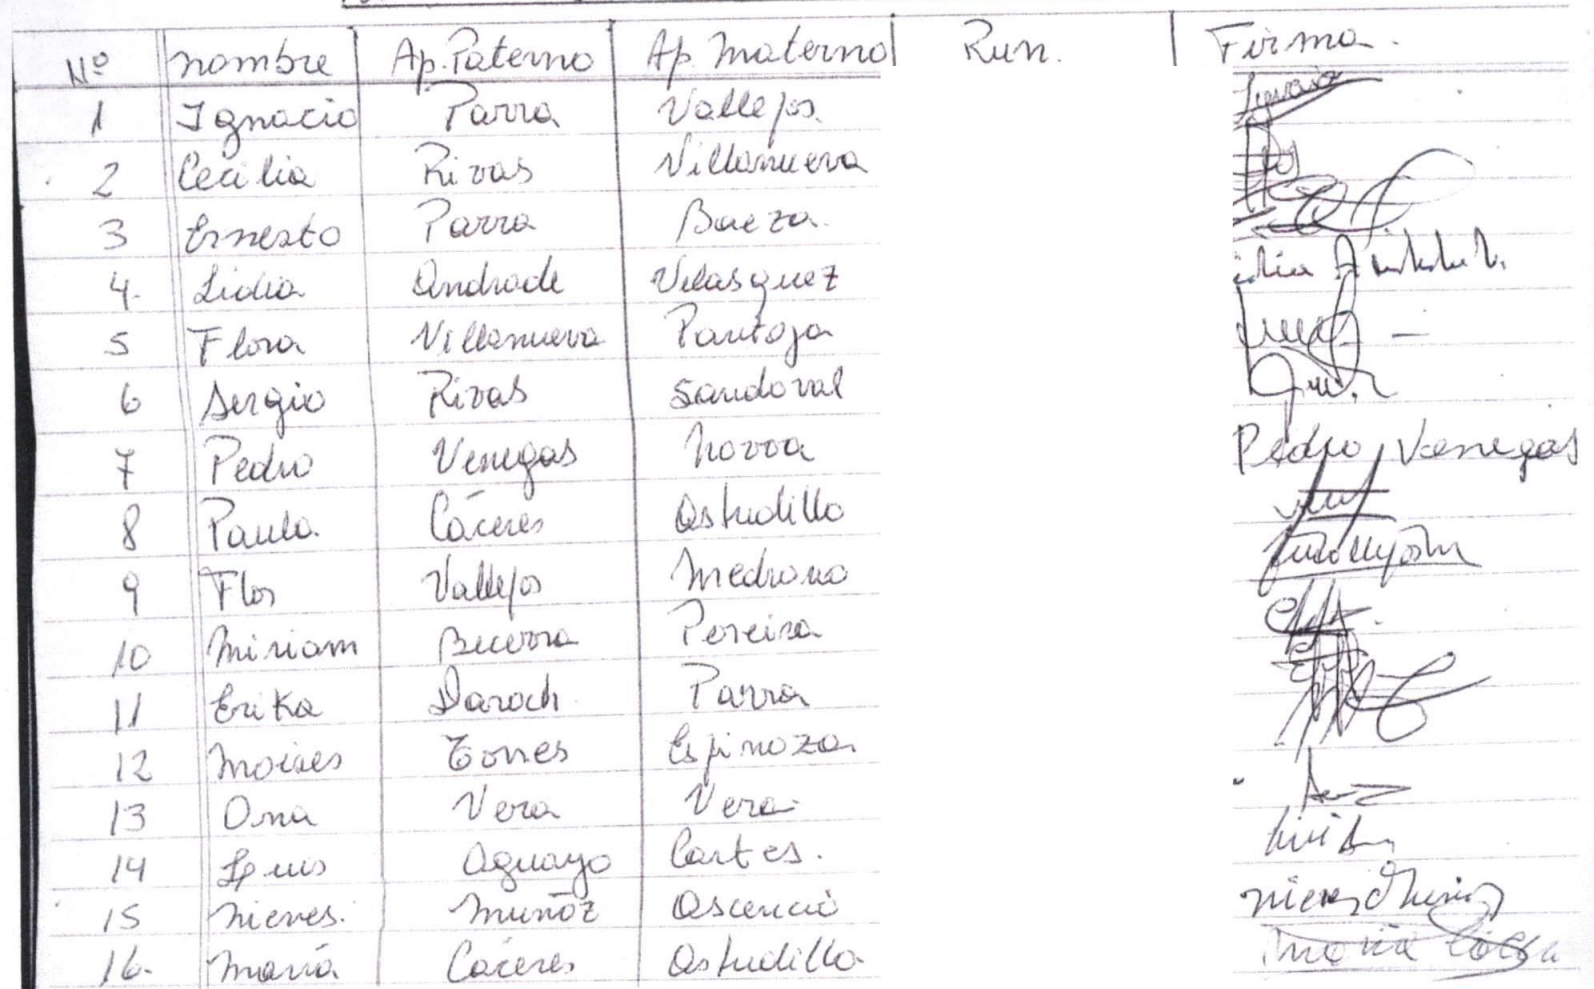 Nº nombre Ap. Paterno Ap. Materno Run. Firma.
1 Ignacio Parra Vallejos Ignacio
2 Cecilia Rivas Villanueva
3 Ernesto Parra Baeza.
4. Lidia Andrade Velasquez
5 Flora Villanueva Pantoja
6 Sergio Rivas Sandoval
7 Pedro Venegas Novoa Pedro Venegas
8 Paula. Cáceres Astudillo
9 Flor Vallejos Medrano
10 Miriam Becerra Pereira
11 Erika Daroch Parra
12 Moises Torres Espinoza
13 Ana Vera Vera
14 Luis Aguayo Cartes.
15 Nieves. Muñoz Ascencio
16. María Cáceres Astudillo